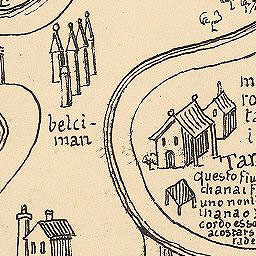 belci-
man
m
ro
ta
i
Tar
questo fiu
chana i f
uno non i
ihana o
cordo esso
acostars
ride